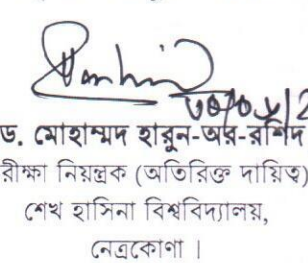 ড. মোহাম্মদ হারুন-অর-রশিদ
রীক্ষা নিয়ন্ত্রক (অতিরিক্ত দায়িত্ব)
শেখ হাসিনা বিশ্ববিদ্যালয়,
নেত্রকোণা ।